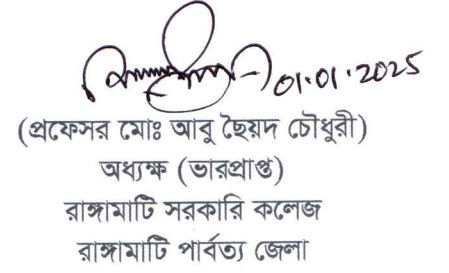 01.01.2025
(প্রফেসর মোঃ আবু ছৈয়দ চৌধুরী)
অধ্যক্ষ (ভারপ্রাপ্ত)
রাঙ্গামাটি সরকারি কলেজ
রাঙ্গামাটি পার্বত্য জেলা